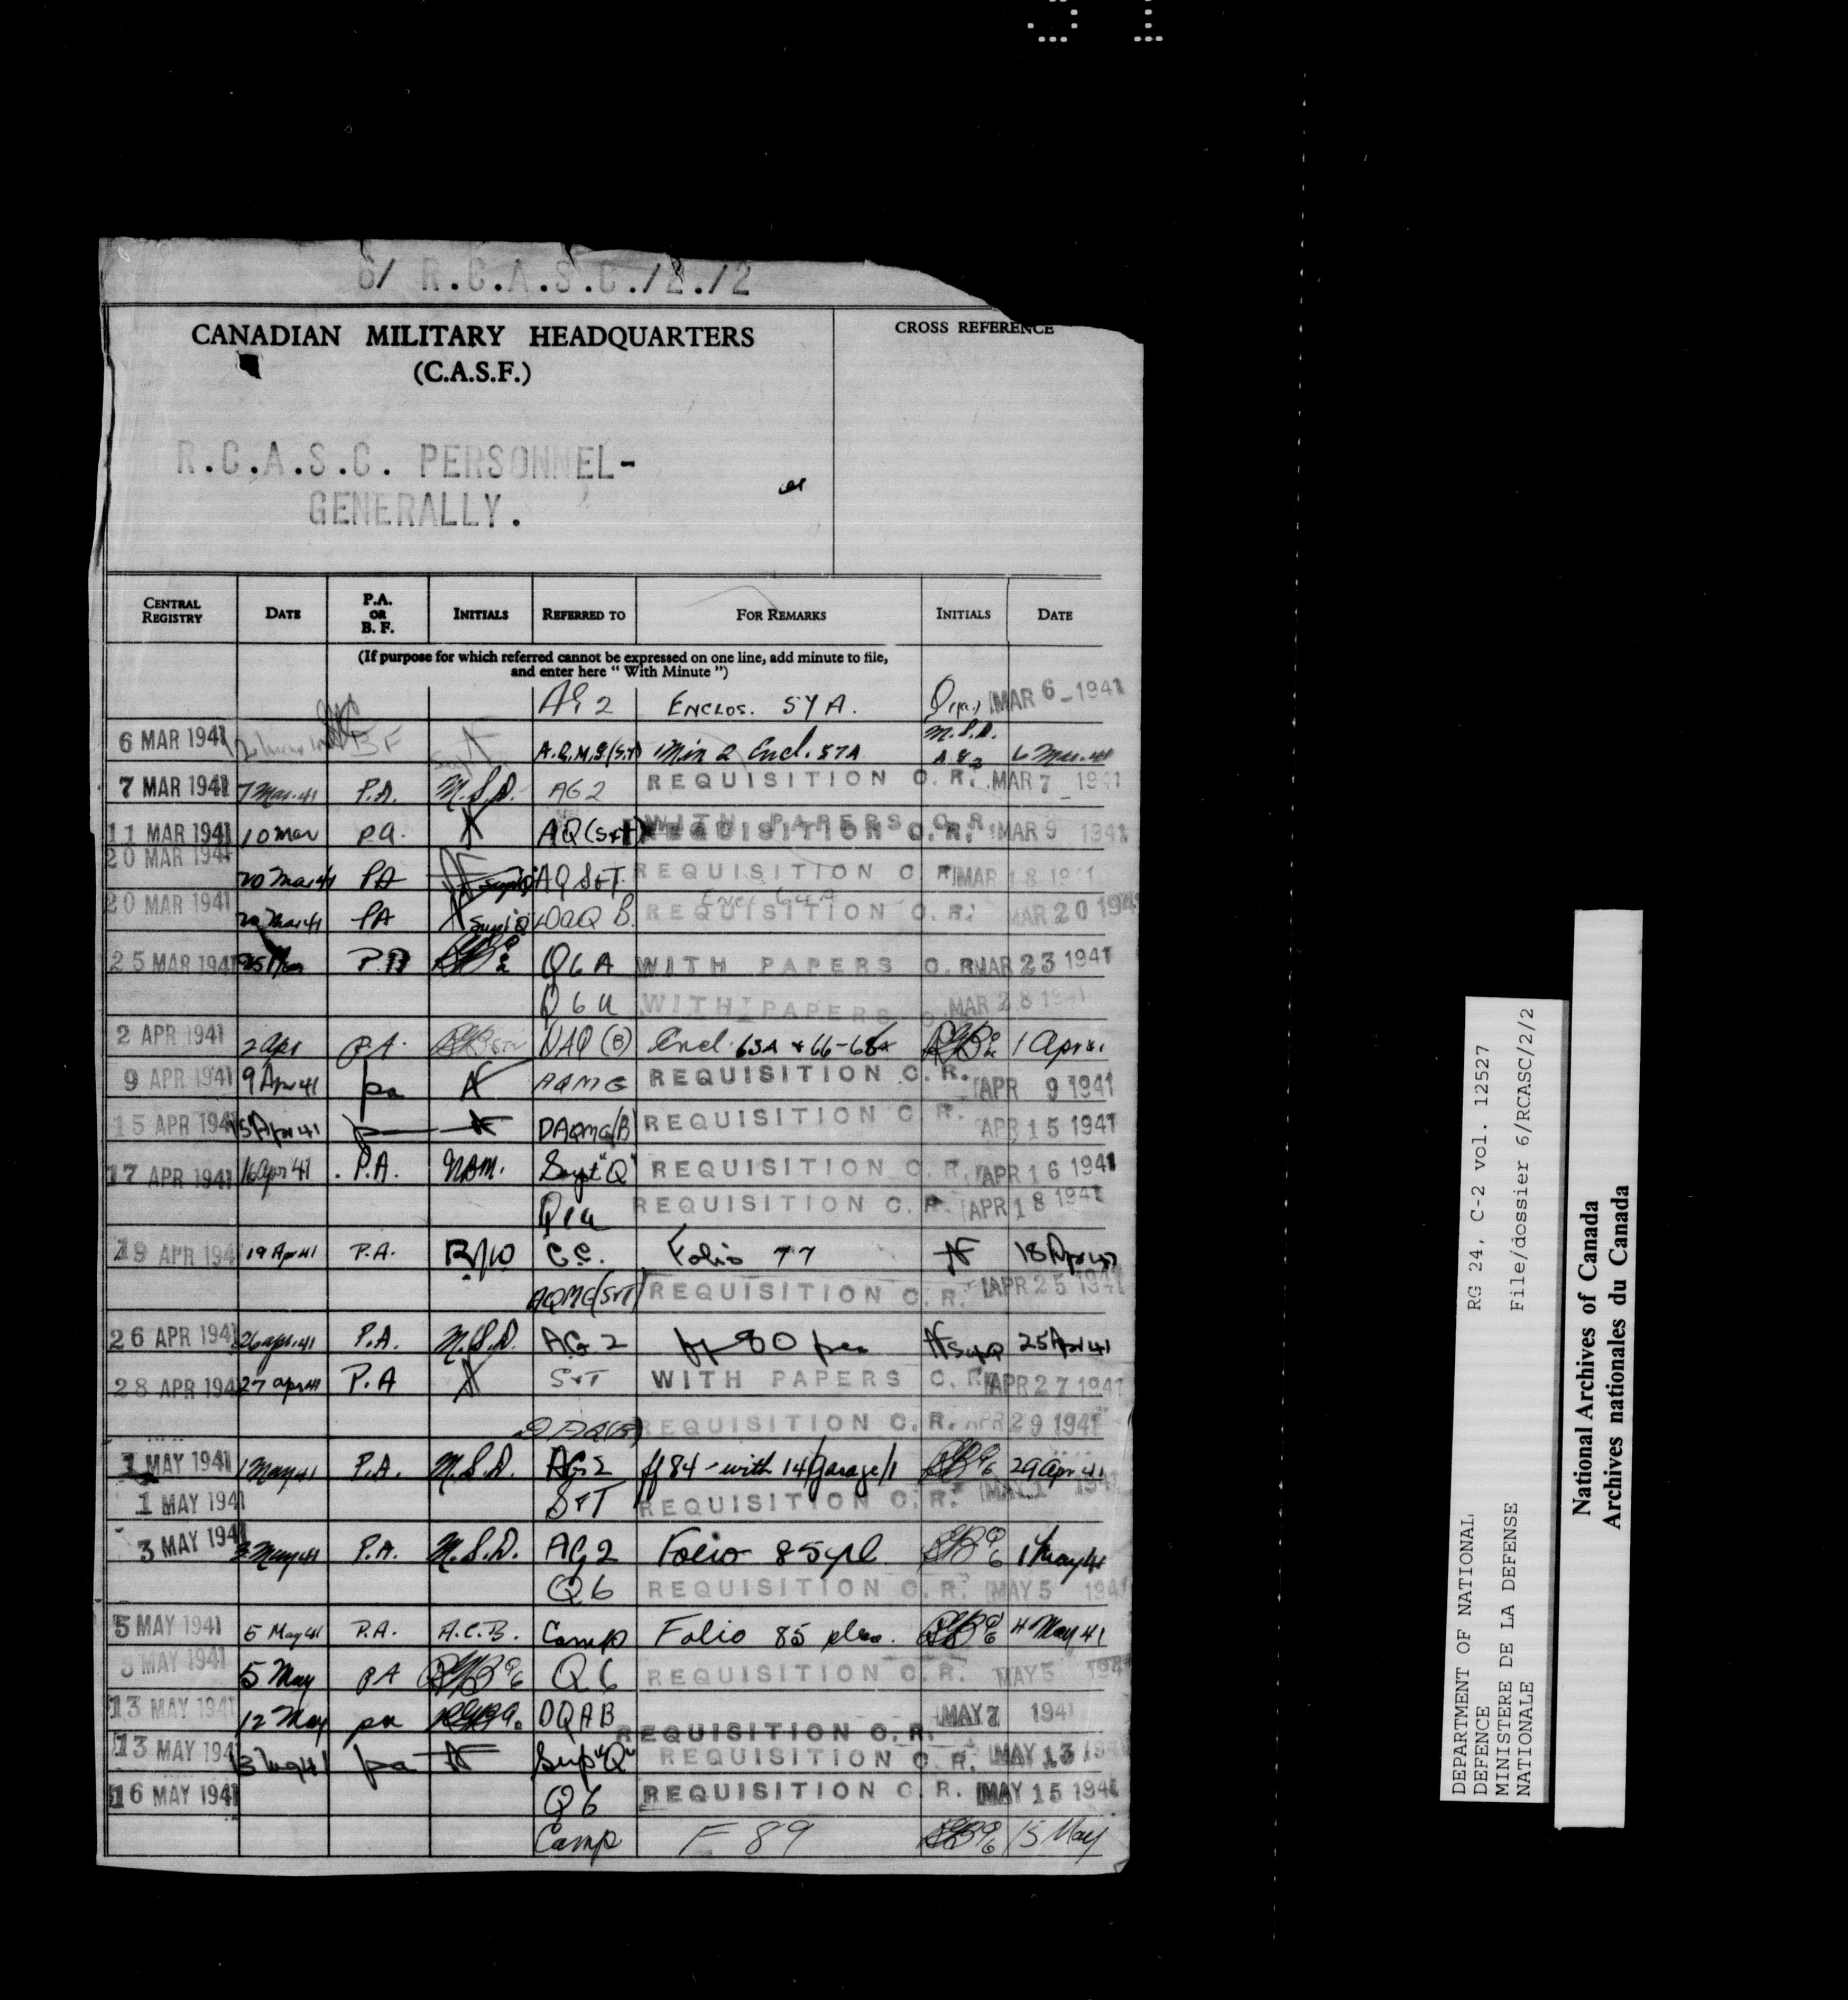 6/ R.C.A.S.C./2./2
CANADIAN MILITARY HEADQUARTERS
(C.A.S.F.)
CROSS REFERENCE
R.C.A.S.C. PERSONNEL-
GENERALLY.
CENTRAL REGISTRY DATE P.A. OR B. F. INITIALS REFERRED TO FOR REMARKS INITIALS DATE
(If purpose for which referred cannot be expressed on one line, add minute to file,
and enter here "With Minute")
AG 2 ENCLOS. 57A. MAR 6 - 1941
6 MAR 1941 BF A.Q.M.G.(S.T) Min 2 Encl. 57A M.S.D. A.G.2 6 Mar. 41
7 MAR 1941 7 Mar. 41 P.A. M.S.D. AG2 REQUISITION C.R. MAR 7 - 1941
11 MAR 1941 10 Mar pa. AQ(S+T) WITH PAPERS C.R. REQUISITION C.R. MAR 9 1941
20 MAR 1941 20 Mar 41 PA AQ S+T. REQUISITION C.R. MAR 18 1941
20 MAR 1941 20 Mar 41 PA DAQ B. REQUISITION C.R. MAR 20 1941
25 MAR 1941 25 Mar P.A Q6A WITH PAPERS C.R. MAR 23 1941
Q6a WITH PAPERS MAR 28 1941
2 APR 1941 2 Apr P.A. DAQ (B) Encl. 63A + 66-68A 1 Apr 41
9 APR 1941 9 Apr 41 pa AQMG REQUISITION C.R. APR 9 1941
15 APR 1941 15 Apr 41 DAQMG(B) REQUISITION C.R. APR 15 1941
17 APR 1941 16 Apr 41 P.A. NBM. Supt "Q" REQUISITION C.R. APR 16 1941
Q1a REQUISITION C.R. APR 18 1941
19 APR 194 19 Apr 41 P.A. G.S. Folio 77 18 Apr 41
AQMG(S+T) REQUISITION C.R. APR 25 1941
26 APR 1941 26 Apr. 41 P.A. M.S.D. AG 2 80 25 Apr 41
28 APR 194 27 Apr 41 P.A S+T WITH PAPERS C.R. APR 27 1941
REQUISITION C.R. APR 29 1941
1 MAY 1941 1 May 41 P.A. M.S.D. AG 2 ff 84 - with 14/Garage/1 29 Apr 41
1 MAY 1941 S+T REQUISITION C.R. MAY 1 1941
3 MAY 1941 3 May 41 P.A. M.S.D. AG 2 Folio 85 1 May 41
Q6 REQUISITION C.R. MAY 5 1941
5 MAY 1941 5 May 41 P.A. A.C.B. Comp Folio 85 plea. 4 May 41
5 MAY 1941 5 May PA Q6 REQUISITION C.R. MAY 5 1941
13 MAY 1941 12 May pa DQAB REQUISITION C.R. MAY 7 1941
13 MAY 194 pa Sup "Q" REQUISITION C.R. MAY 13 19
16 MAY 1941 Q6 REQUISITION C.R. MAY 15 1941
Comp F 89 15 May
DEPARTMENT OF NATIONAL DEFENCE RG 24, C-2 vol. 12527
MINISTERE DE LA DEFENSE NATIONALE File/dossier 6/RCASC/2/2
National Archives of Canada
Archives nationales du Canada